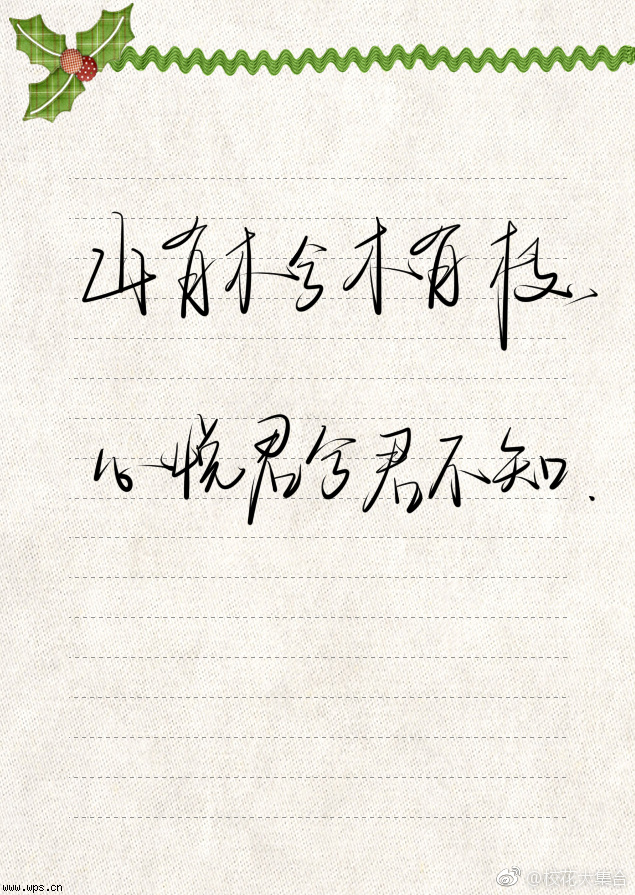 山有木兮木有枝、
心悦君兮君不知.
www.wps.cn
@校花大集合